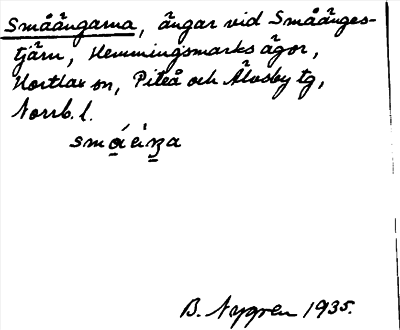 Småängarna, ängar vid Småänges-
tjärn, Hemmingsmarks ägor,
Hortlax sn, Piteå och Älvsby tg,
Norrb. l.
B. Nygren 1935.